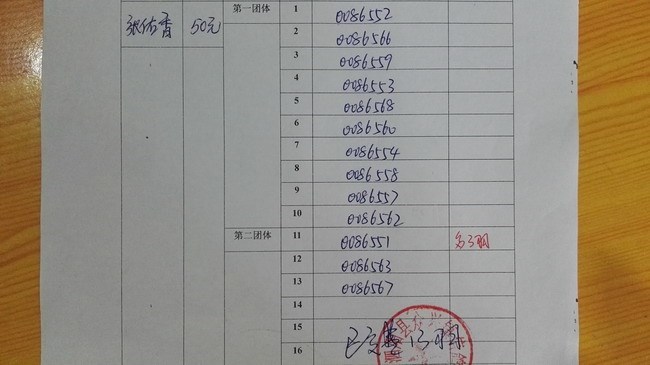 第一团体 1 0086552
张佑香 50元
2 0086566
3 0086559
4 0086553
5 0086568
6 0086560
7 0086554
8 0086558
9 0086557
10 0086562
第二团体 11 0086551
12 0086563
13 0086567
14
15
16